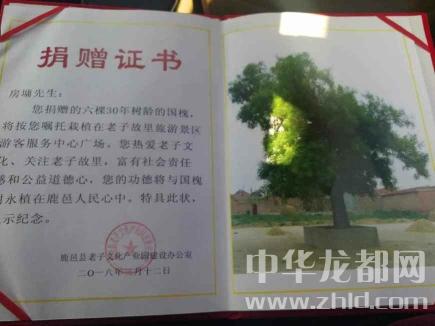 捐赠证书
房墉先生：
您捐赠的六棵30年树龄的国槐
将按您嘱托栽植在老子故里旅游景区
游客服务中心广场。您热爱老子文
化、关注老子故里，富有社会责任
感和公益道德心，您的功德将与国槐
树永植在鹿邑人民心中。特具此状，
示纪念。
鹿邑县老子文化产业园建设办公室
二〇一八年 月十二日
中华龙都网
www.zhld.com